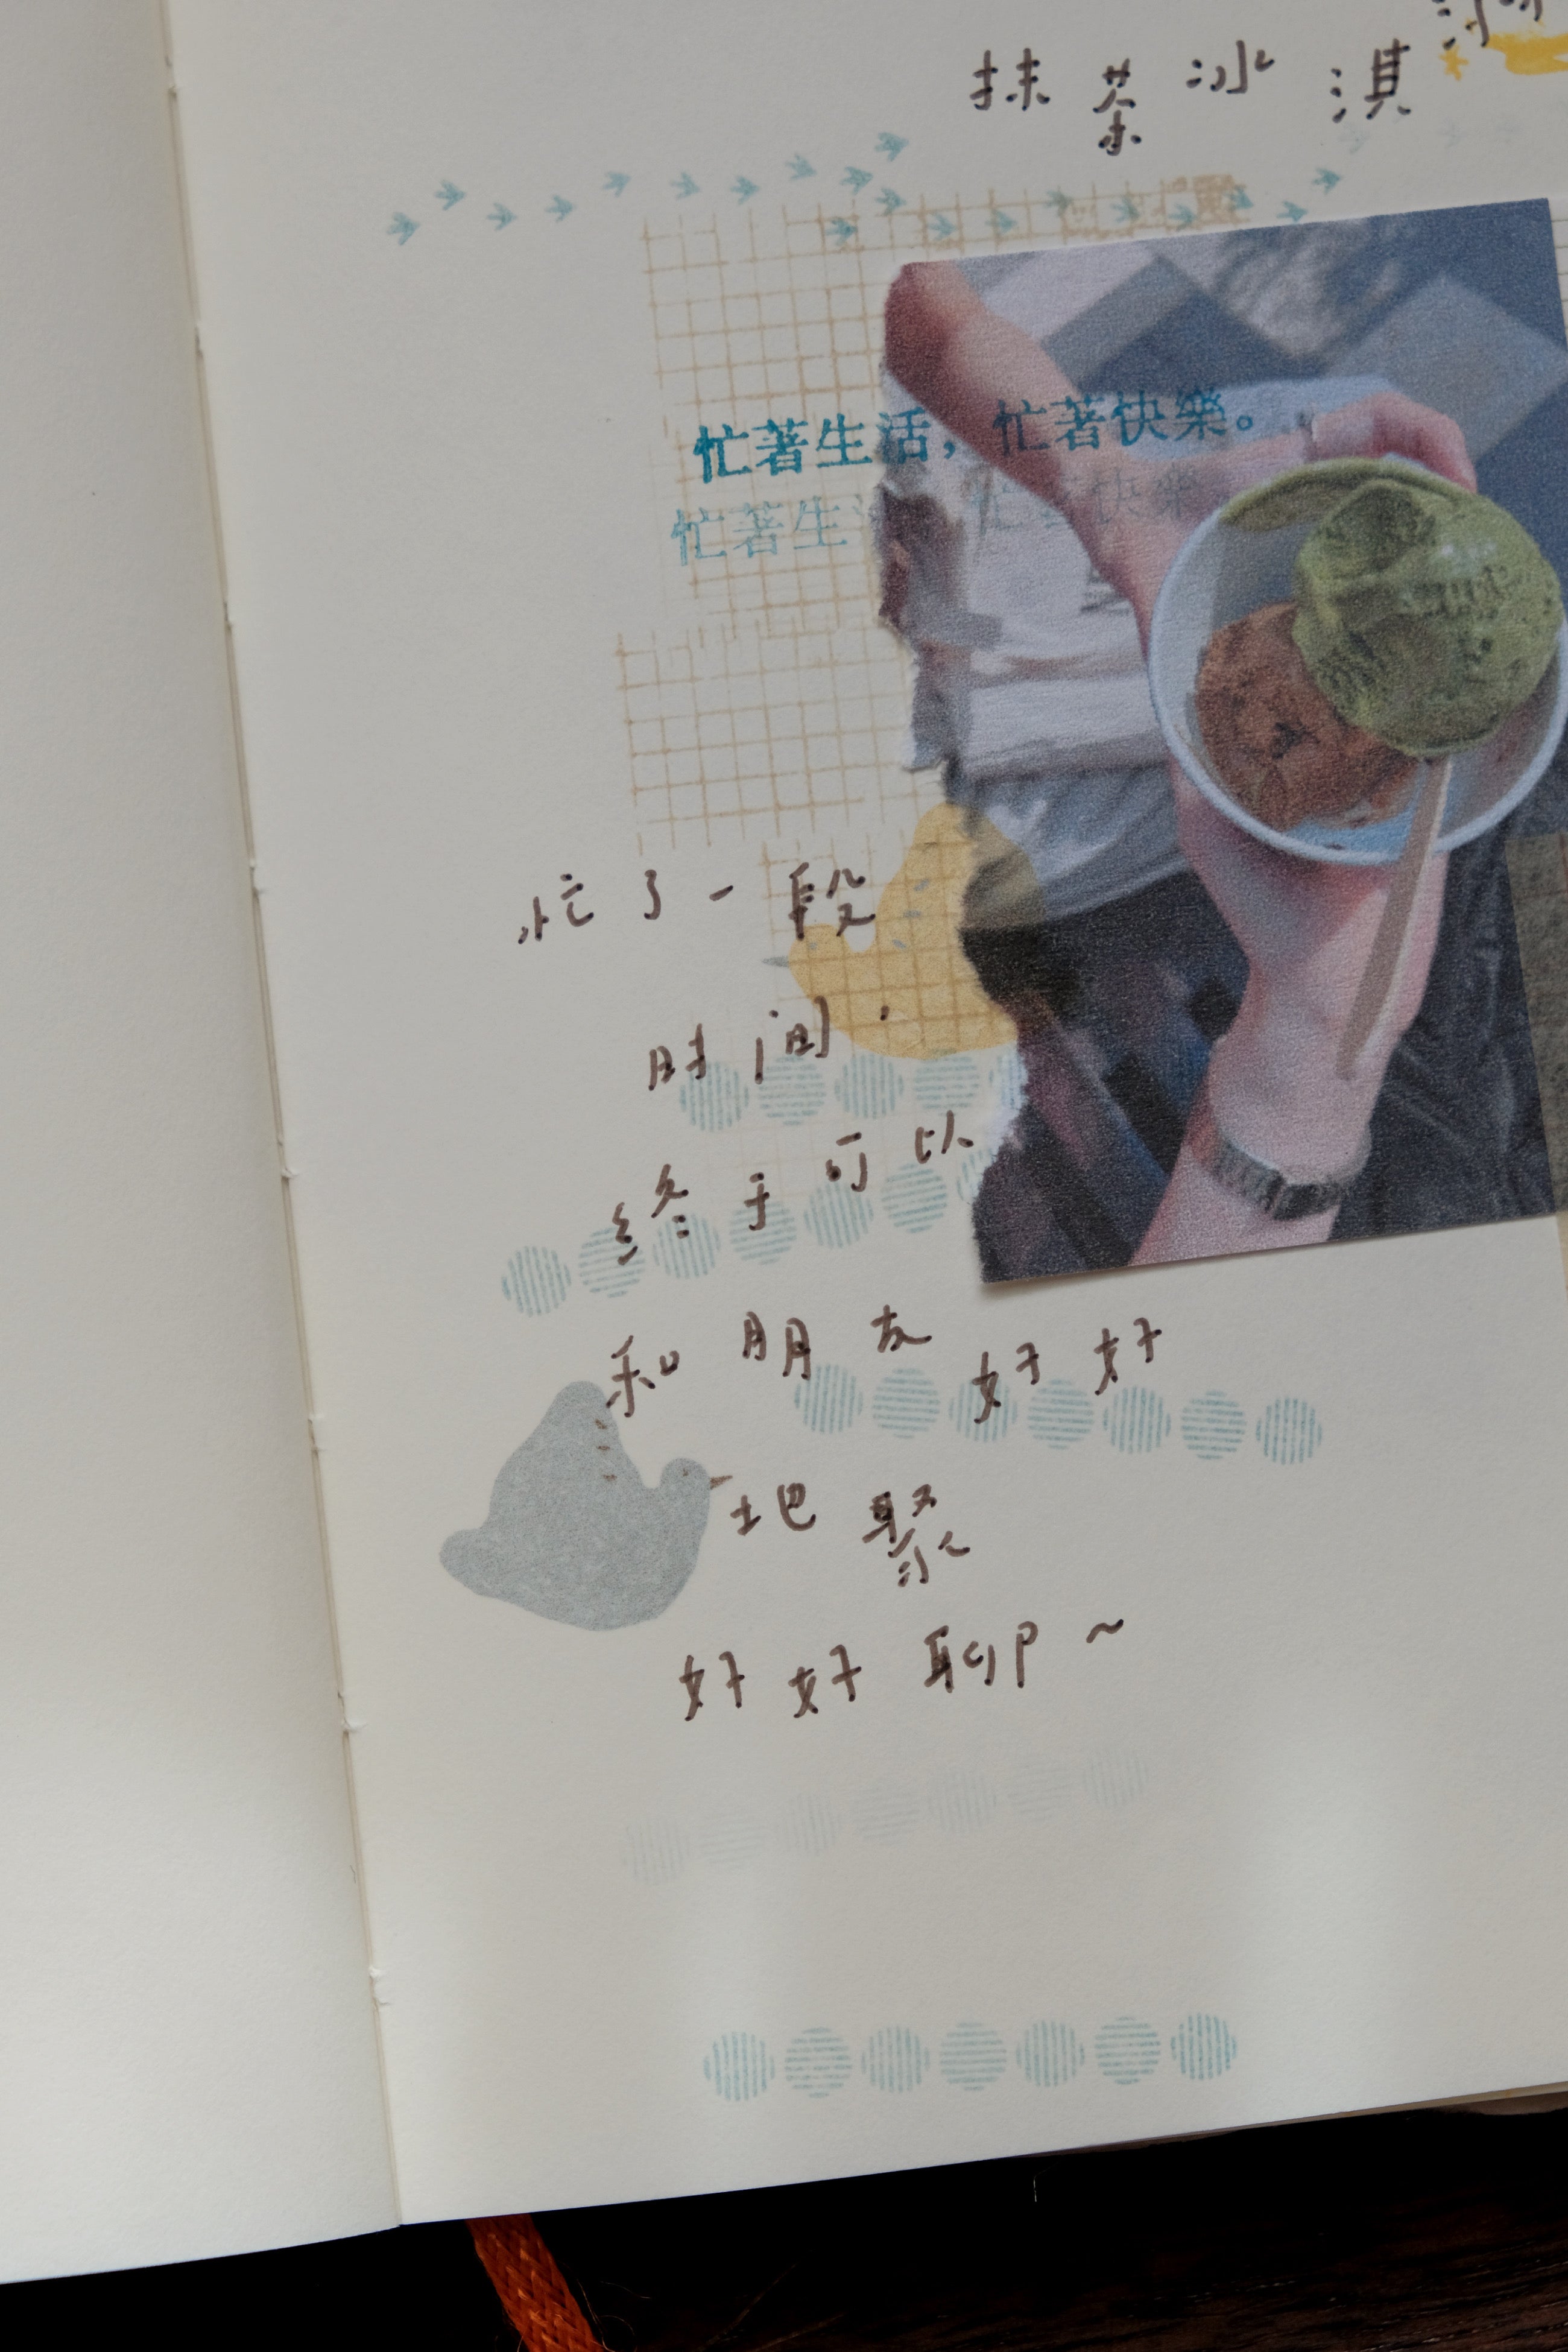 抹茶冰淇
忙著生活，忙著快樂。
忙著生活，忙著快樂
忙了一段
时间，
终于可以
和朋友好好
地聚
好好聊~